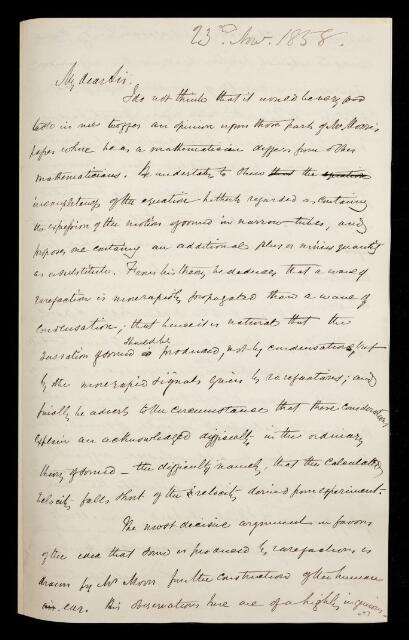 23d. Nov. 1858.
My dear Sir.
I do not think that it would be very
in me to offer an opinion upon those parts of Mr Moon's
paper where he as a mathematician differs from other
mathematicians. He undertakes to shew that the equation
incompleteness of the equation hitherto regarded as containing
the expression of the motion of sound in narrow tubes, and
proposes one containing an additional plus or minus quantity
as a substitute. From his theory he deduces that a wave of
rarefaction is more rapidly propagated than a wave of
condensation; that hence it is natural that the
sensation of sound is should be produced, not by condensations, but
by the more rapid signals given by rarefactions; and
finally he adverts to the circumstance that these considerations
explain an acknowledged difficulty in the ordinary
theory of sound – the difficulty namely, that the calculated
velocity falls short of the velocity derived from experiment.
The most decisive argument in favour
of the idea that sound is produced by rarefactions is
drawn by Mr Moon from the construction of the human
ear. His observations here are of a highly ingenious